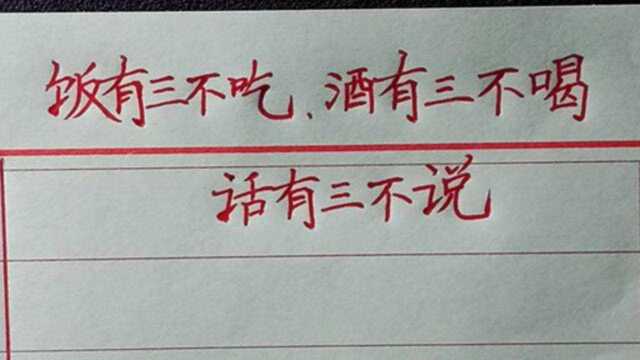 饭有三不吃、酒有三不喝
话有三不说